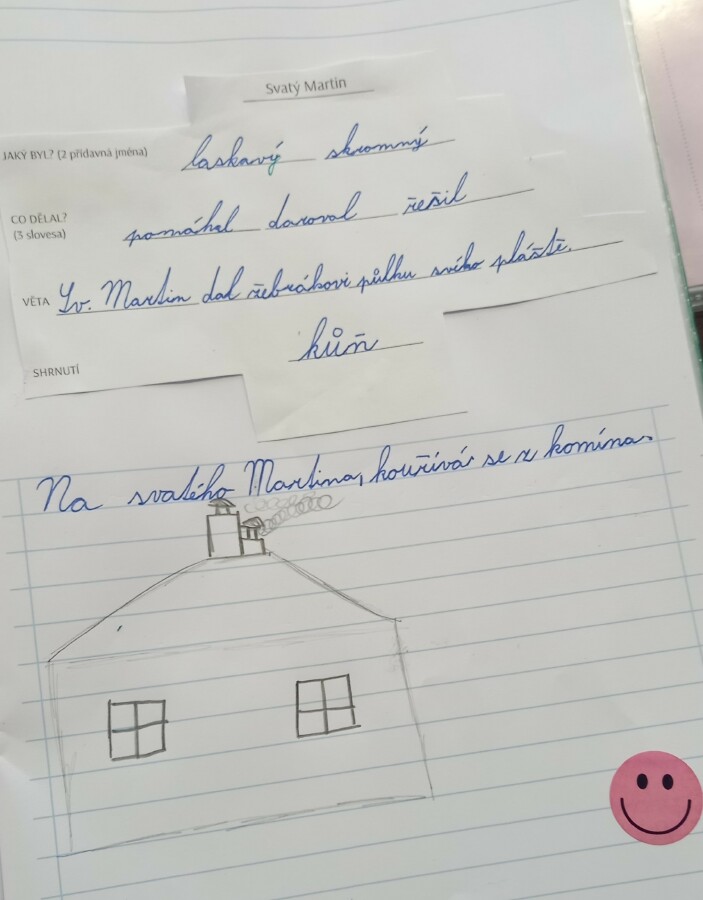 Svatý Martin
JAKÝ BYL? (2 přídavná jména) laskavý skromný
CO DĚLAL?
(3 slovesa) pomáhal daroval řešil
VĚTA Sv. Martin dal žebrákovi půlku svého pláště.
kůň
SHRNUTÍ
Na svatého Martina, kouřívá se z komína.